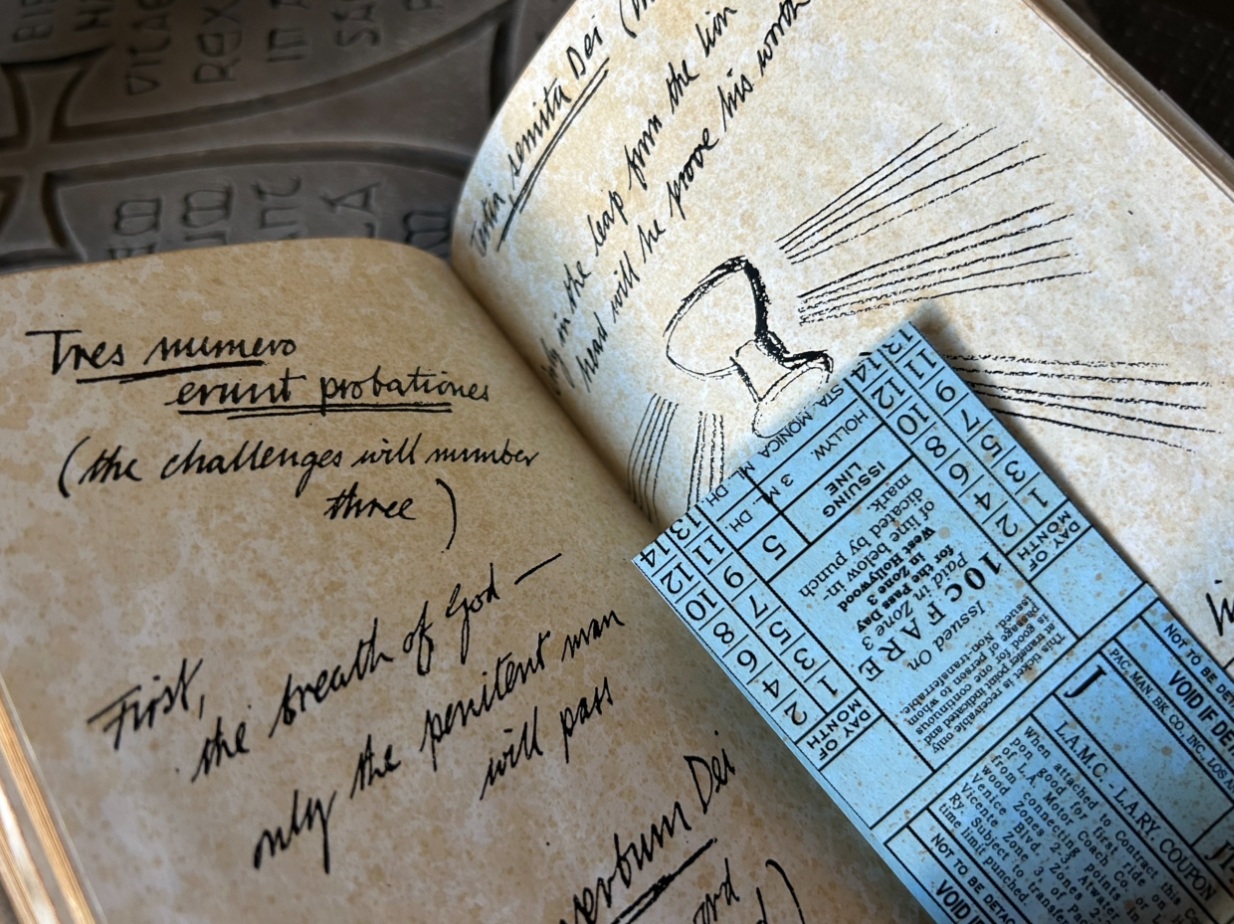 Tres numero
erunt probationes
(the challenges will number
three)
First,
the breath of God —
only the penitent man
will pass
verbum Dei
semita Dei
in the leap from the lion
head will he prove his worth
DAY OF
MONTH
1 3 5 7 9 11 13
2 4 6 8 10 12 14
10c FARE
Paid in Zone 3
Issued On
West Hollywood
in the Pass Day
for Zone 3
of line below in-
dicated by punch
mark.
ISSUING
LINE
HOLLYW.
STA. MONICA
3 M
M.
DH.
DH.
5
DAY OF
MONTH
1 3 5 7 9 11 13
2 4 6 8 10 12 14
This ticket is receivable only
at transfer point indicated and
is good for one continuous
passage of person to whom
issued. Non-transferrable.
NOT TO BE DE
VOID IF DET
PAC. MAN. BK. CO., INC., LOS A
J
L.A.M.C. - LARY COUPON
When attached to Contract this
pon good for first ride on
of L.A. Motor Coach Co. or
from connecting points,
wood Zones 2-3, Atwa
Venice Blvd. Zone 3, or
Vicente Zone of Pa
Ry. Subject to transfe
time limit punched.
NOT TO BE DE
VOID IF